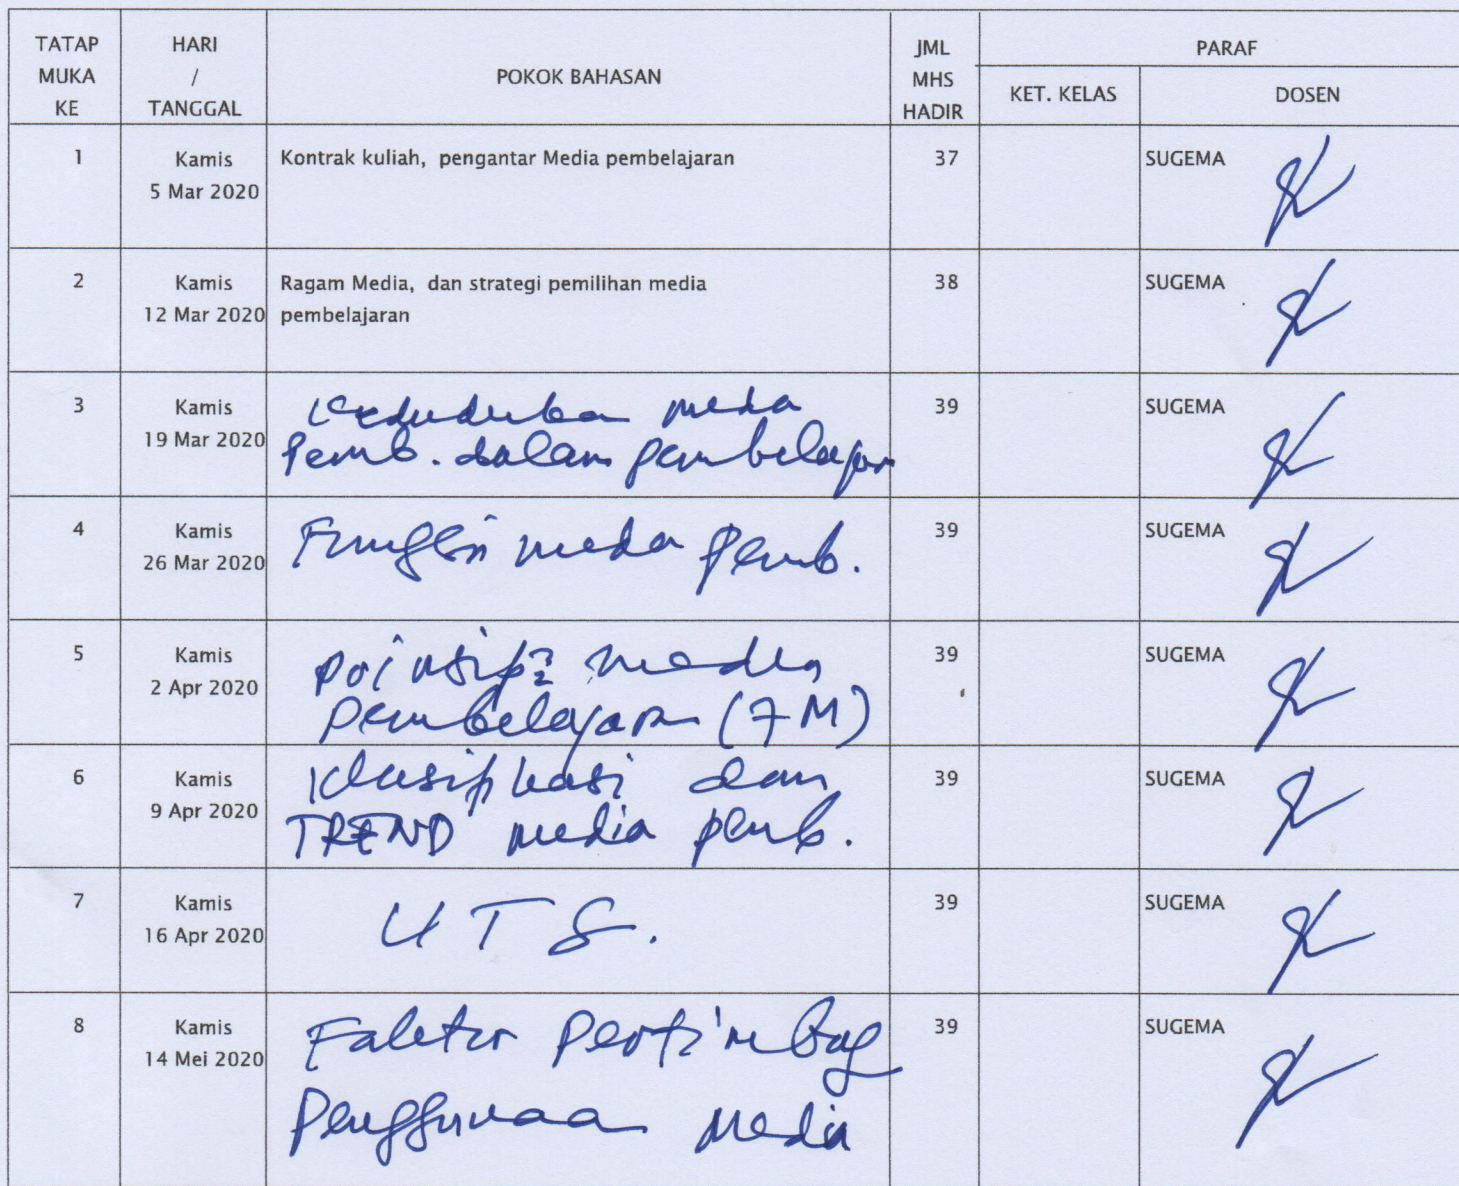 TATAP MUKA KE
HARI / TANGGAL
POKOK BAHASAN
JML MHS HADIR
PARAF
KET. KELAS
DOSEN
1
Kamis
5 Mar 2020
Kontrak kuliah, pengantar Media pembelajaran
37
SUGEMA
2
Kamis
12 Mar 2020
Ragam Media, dan strategi pemilihan media
pembelajaran
38
SUGEMA
3
Kamis
19 Mar 2020
Kedudukan media
Pemb. dalam pembelajaran
39
SUGEMA
4
Kamis
26 Mar 2020
Fungsi media pemb.
39
SUGEMA
5
Kamis
2 Apr 2020
prinsip2 media
pembelajaran (7 M)
39
SUGEMA
6
Kamis
9 Apr 2020
Klasifikasi dan
TREND media pemb.
39
SUGEMA
7
Kamis
16 Apr 2020
UTS.
39
SUGEMA
8
Kamis
14 Mei 2020
Faktor Pertimbag
Penggunaa Media
39
SUGEMA